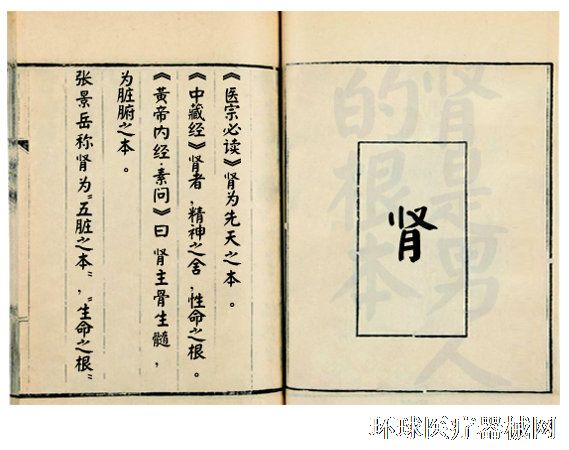 肾是男人
的根本
肾
《医宗必读》肾为先天之本。
《中藏经》肾者，精神之舍，性命之根。
《黄帝内经·素问》曰肾主骨生髓，
为脏腑之本。
张景岳称肾为“五脏之本”，“生命之根”
环球医疗器械网